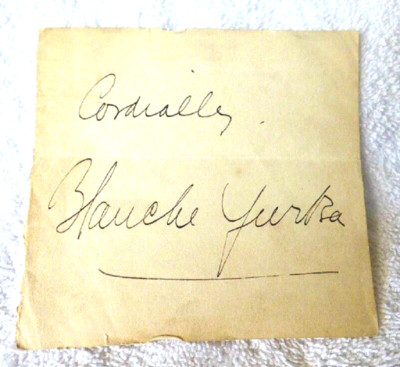 Cordially,
Blanche Yurka